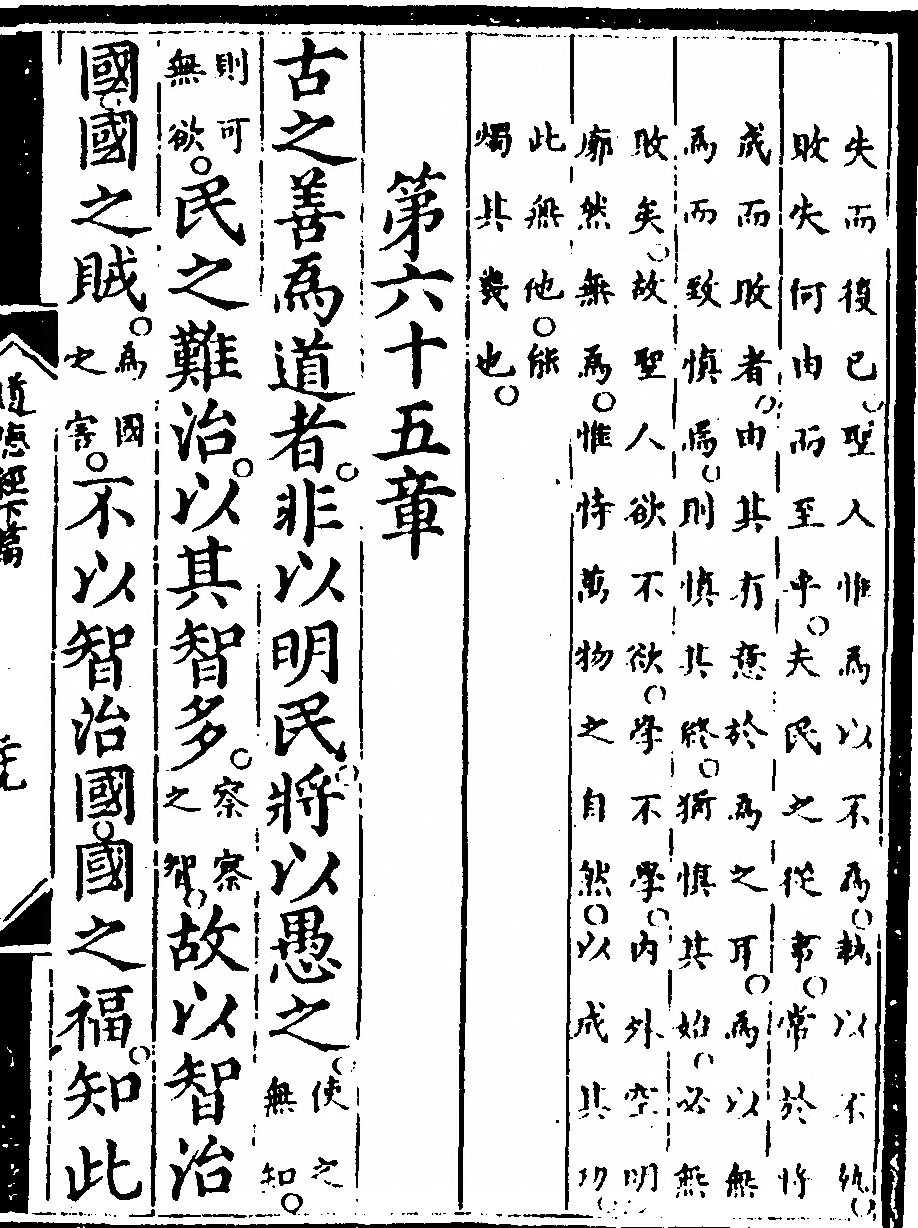 失而復已聖人惟為以不為執以不執
敗失何由而至乎夫民之從事常於將
成而敗者由其有意於為之耳為以無
為而致慎焉則慎其終猶慎其始必無
敗矣故聖人欲不欲學不學內外空明
廓然無為惟恃萬物之自然以成其功
此無他能
燭其幾也
第六十五章
古之善為道者非以明民將以愚之使之無知
則可無欲民之難治以其智多察察之智故以智治
國國之賊為國之害不以智治國國之福知此
道德經下篇